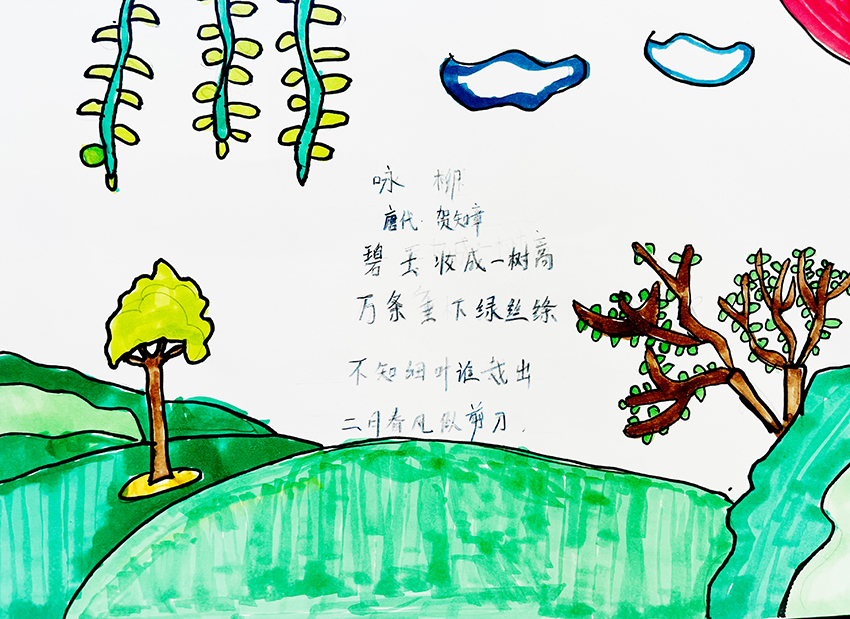 咏 柳
唐代·贺知章
碧玉妆成一树高
万条垂下绿丝绦
不知细叶谁裁出
二月春风似剪刀.